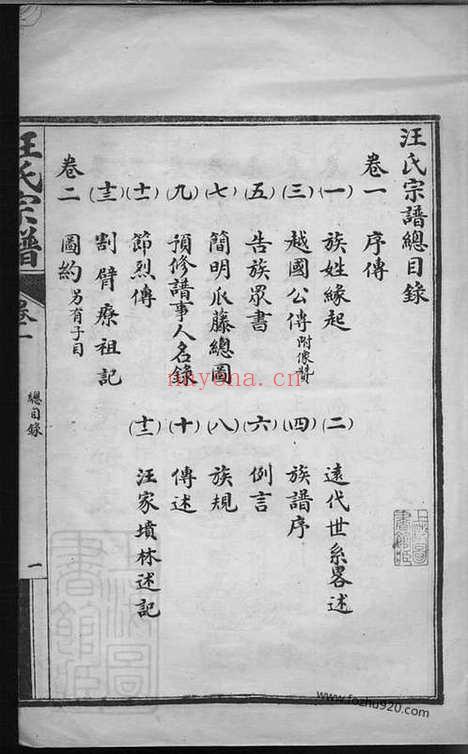 汪氏宗譜總目錄
卷一 序傳
(一) 族姓緣起
(二) 遠代世系畧述
(三) 越國公傳 附像贊
(四) 族譜序
(五) 告族眾書
(六) 例言
(七) 簡明瓜藤總圖
(八) 族規
(九) 預修譜事人名錄
(十) 傳述
(十一) 節烈傳
(十二) 汪家墳林述記
(十三) 割臂療祖記
卷二 圖約 另有子目
汪氏宗譜
卷一
總目錄
一
nayona.cn
www.fozhu920.com